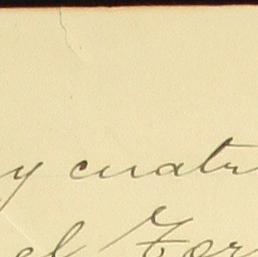 y cuatr
el For